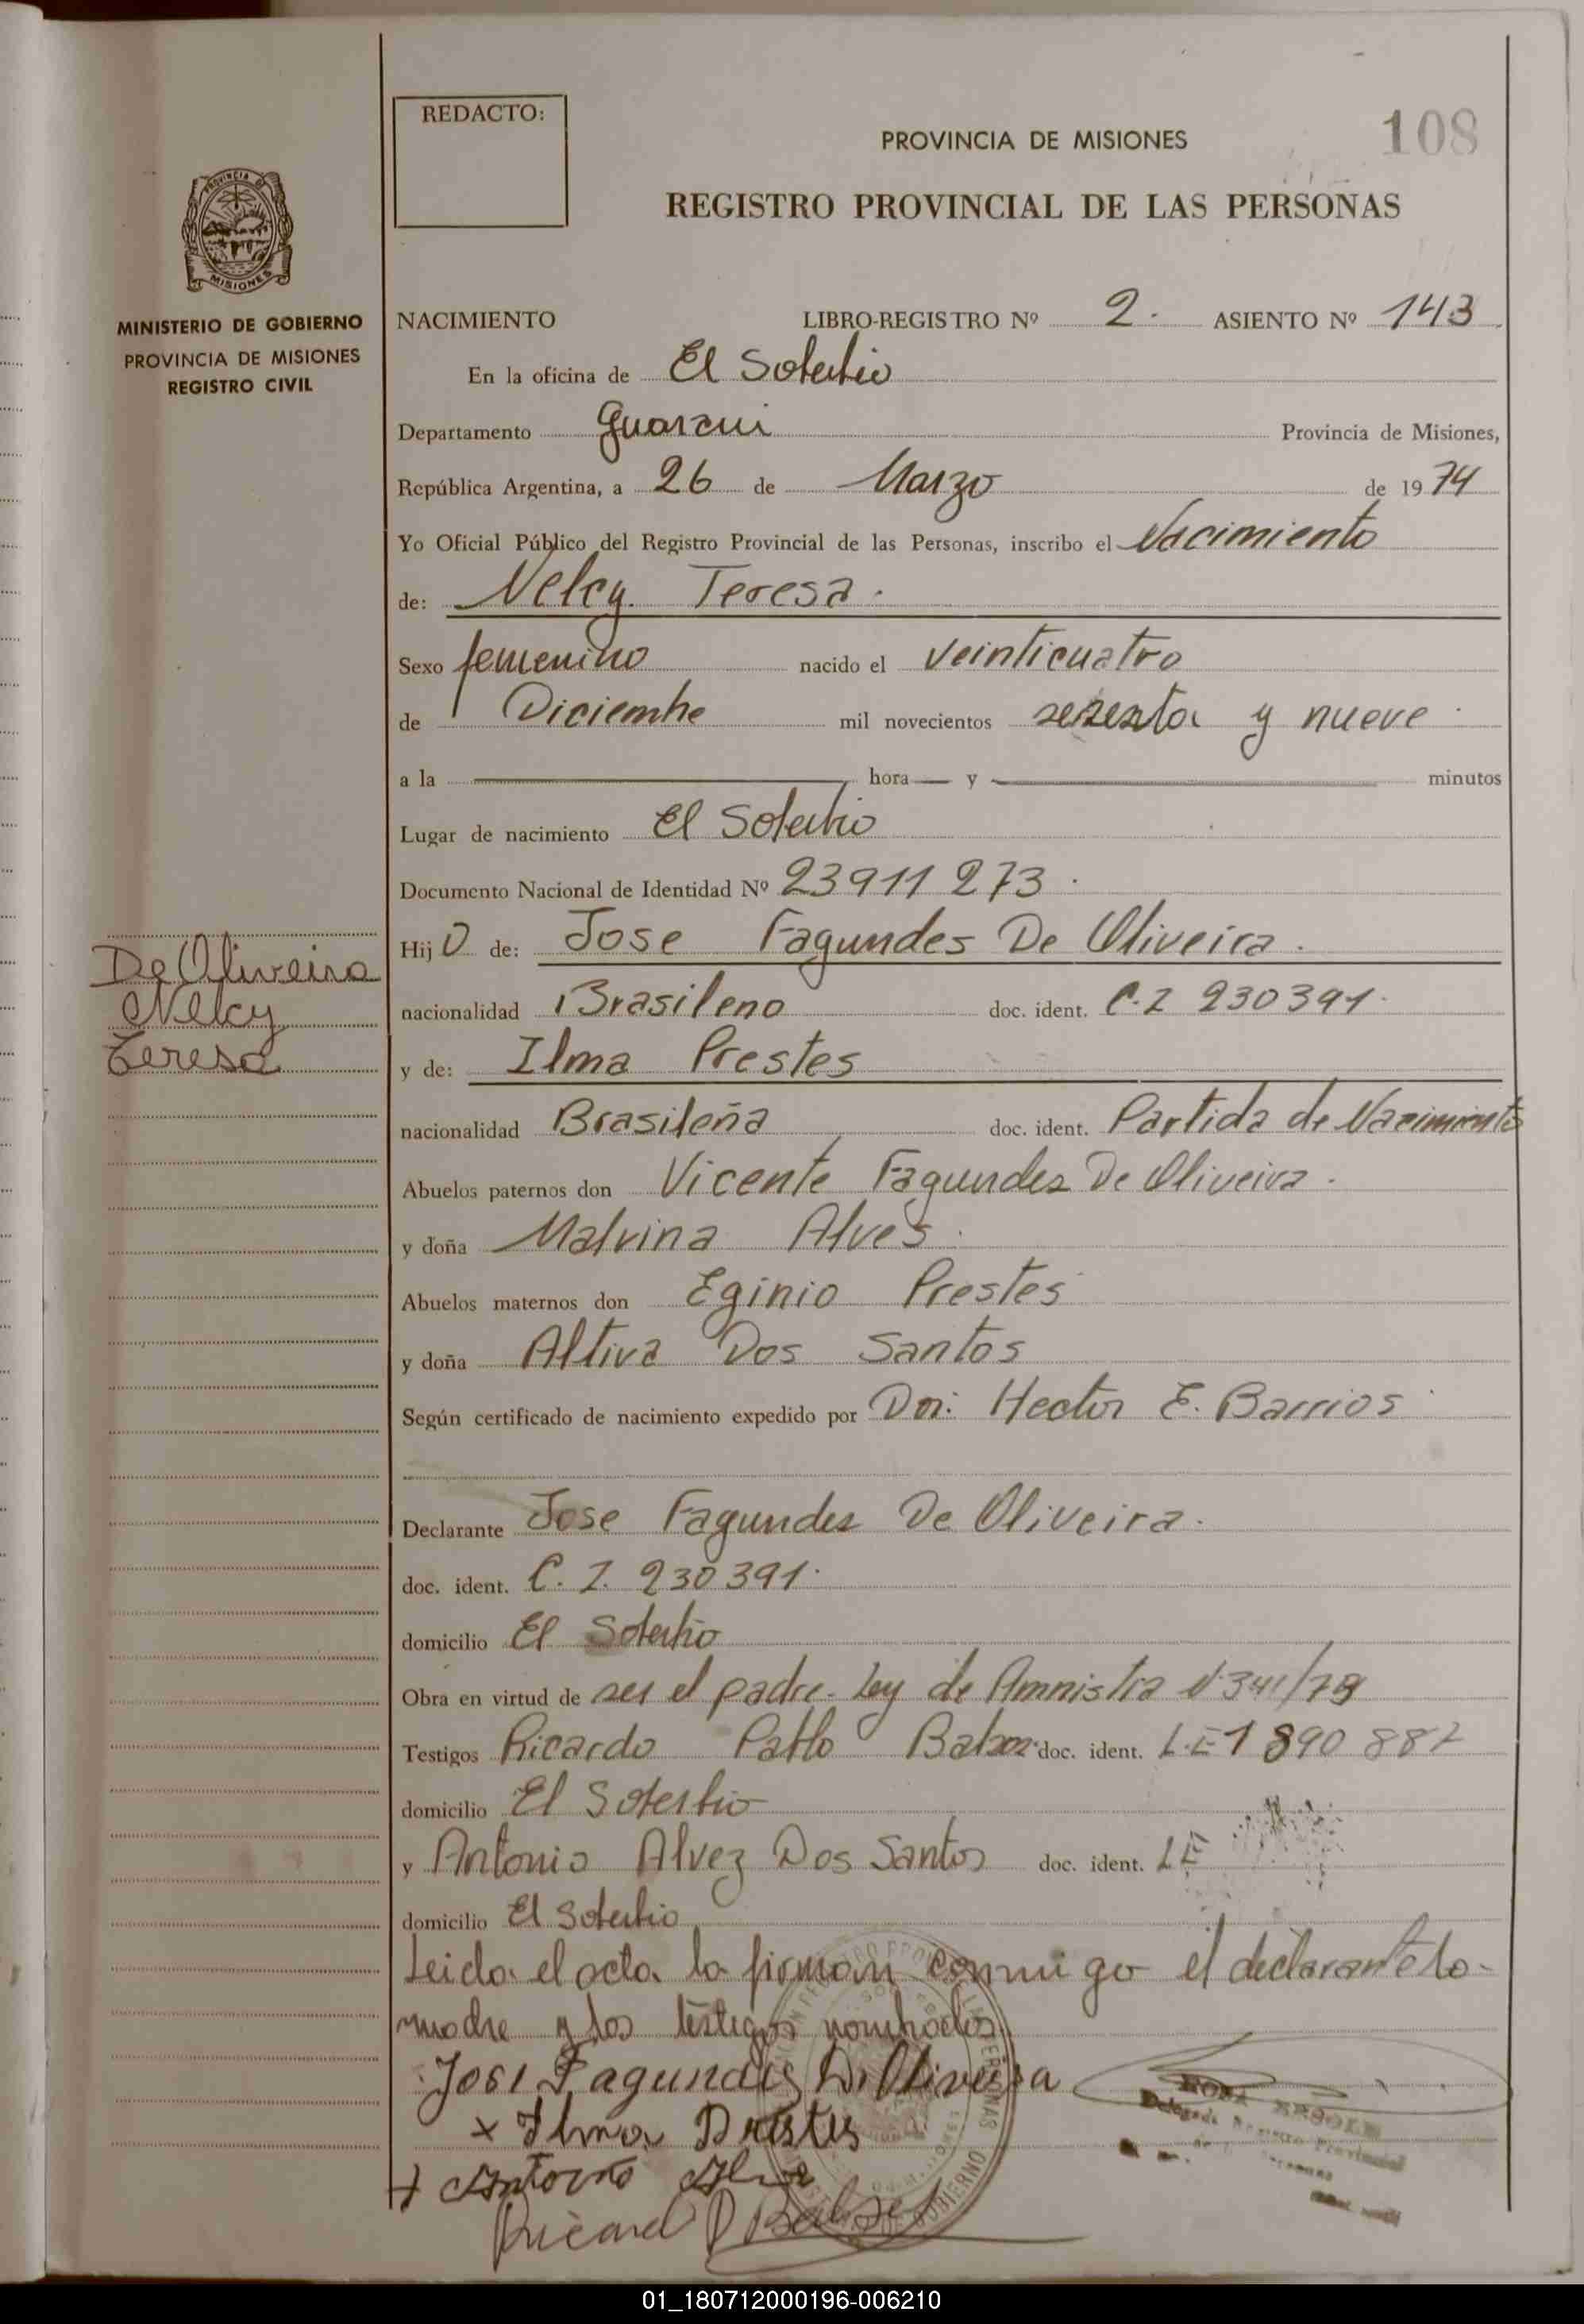 REDACTO:
108
PROVINCIA DE MISIONES
REGISTRO PROVINCIAL DE LAS PERSONAS
PROVINCIA DE
MISIONES
MINISTERIO DE GOBIERNO
PROVINCIA DE MISIONES
REGISTRO CIVIL
NACIMIENTO LIBRO-REGISTRO Nº 2. ASIENTO Nº 143
En la oficina de El Soberbio
Departamento Guarani Provincia de Misiones,
República Argentina, a 26 de Marzo de 1974
Yo Oficial Público del Registro Provincial de las Personas, inscribo el Nacimiento
de: Nelcy Teresa.
Sexo femenino nacido el veinticuatro
de Diciembre mil novecientos sesenta y nueve
a la hora y minutos
Lugar de nacimiento El Soberbio
Documento Nacional de Identidad Nº 23911273.
De Oliveira
Nelcy
Teresa
Hij o de: Jose Fagundes De Oliveira.
nacionalidad Brasileno doc. ident. C.I 230391.
y de: Ilma Prestes
nacionalidad Brasileña doc. ident. Partida de Nacimiento
Abuelos paternos don Vicente Fagundes De Oliveira.
y doña Malvina Alves.
Abuelos maternos don Eginio Prestes
y doña Altiva Dos Santos
Según certificado de nacimiento expedido por Dr: Hector E. Barrios
Declarante Jose Fagundes De Oliveira.
doc. ident. C. I. 230391.
domicilio El Soberbio
Obra en virtud de ser el padre. Ley de Amnistia
Testigos Ricardo Pablo doc. ident. L.E
domicilio El Soberbio
y Antonio Alvez Dos Santos doc. ident. LE
domicilio El Soberbio
Leida el acta la firman conmigo el declarante la
madre y los testigos nombrados
Jose Fagundes De Oliveira
x Ilma Prestes
+ Antonio
Ricard
GOBIERNO
01_180712000196-006210